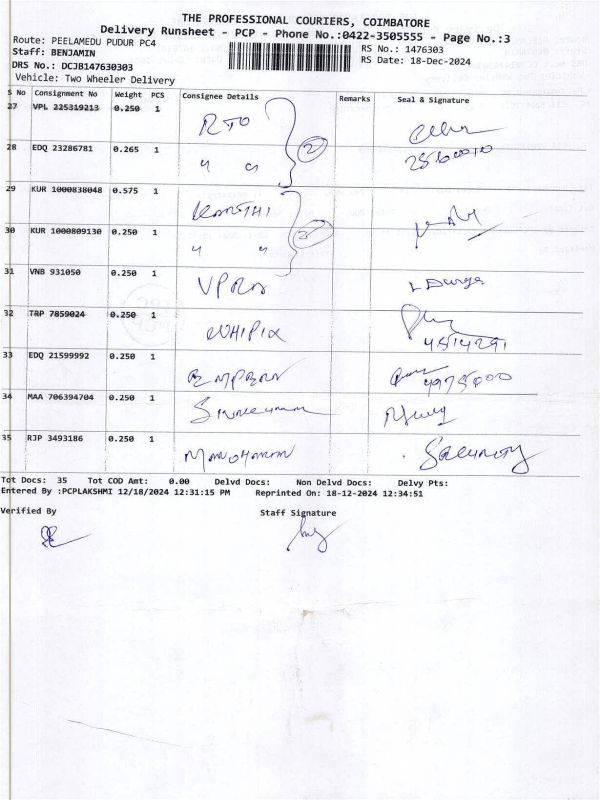 THE PROFESSIONAL COURIERS, COIMBATORE
Delivery Runsheet - PCP - Phone No.:0422-3505555 - Page No.:3
Route: PEELAMEDU PUDUR PC4 RS No.: 1476303
Staff: BENJAMIN RS Date: 18-Dec-2024
DRS No.: DCJB147630303
Vehicle: Two Wheeler Delivery
S No Consignment No Weight PCS Consignee Details Remarks Seal & Signature
27 VPL 225319213 0.250 1 RTO
2
28 EDQ 23286781 0.265 1 " "
29 KUR 1000838048 0.575 1
30 KUR 1000809130 0.250 1 " "
31 VNB 931050 0.250 1
32 TRP 7859024 0.250 1 WHIPIX
4514291
33 EDQ 21599992 0.250 1
34 MAA 706394704 0.250 1
35 RJP 3493186 0.250 1 Security
Tot Docs: 35 Tot COD Amt: 0.00 Delvd Docs: Non Delvd Docs: Delvy Pts:
Entered By :PCPLAKSHMI 12/18/2024 12:31:15 PM Reprinted On: 18-12-2024 12:34:51
Verified By Staff Signature